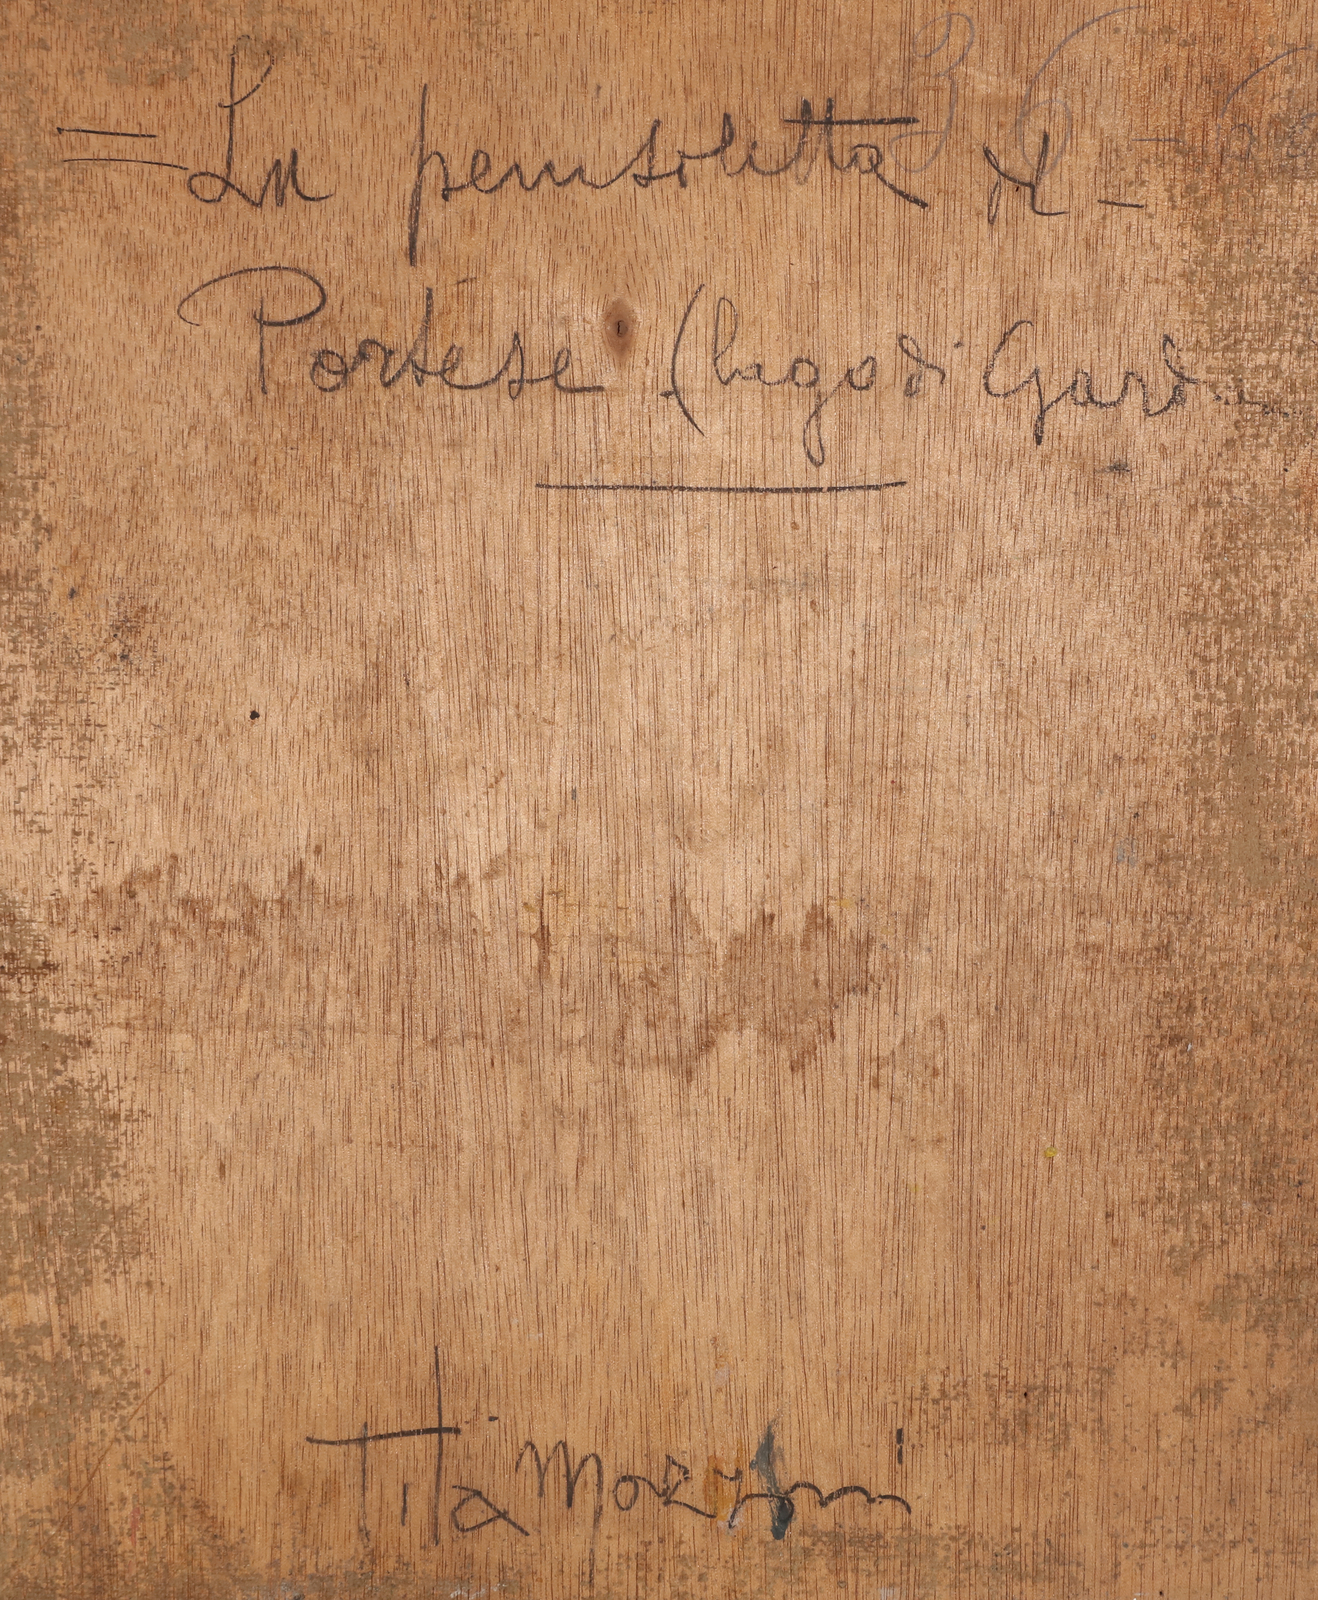 = La penisoletta di -
Portese (lago di Garda
Tita Mozzoni